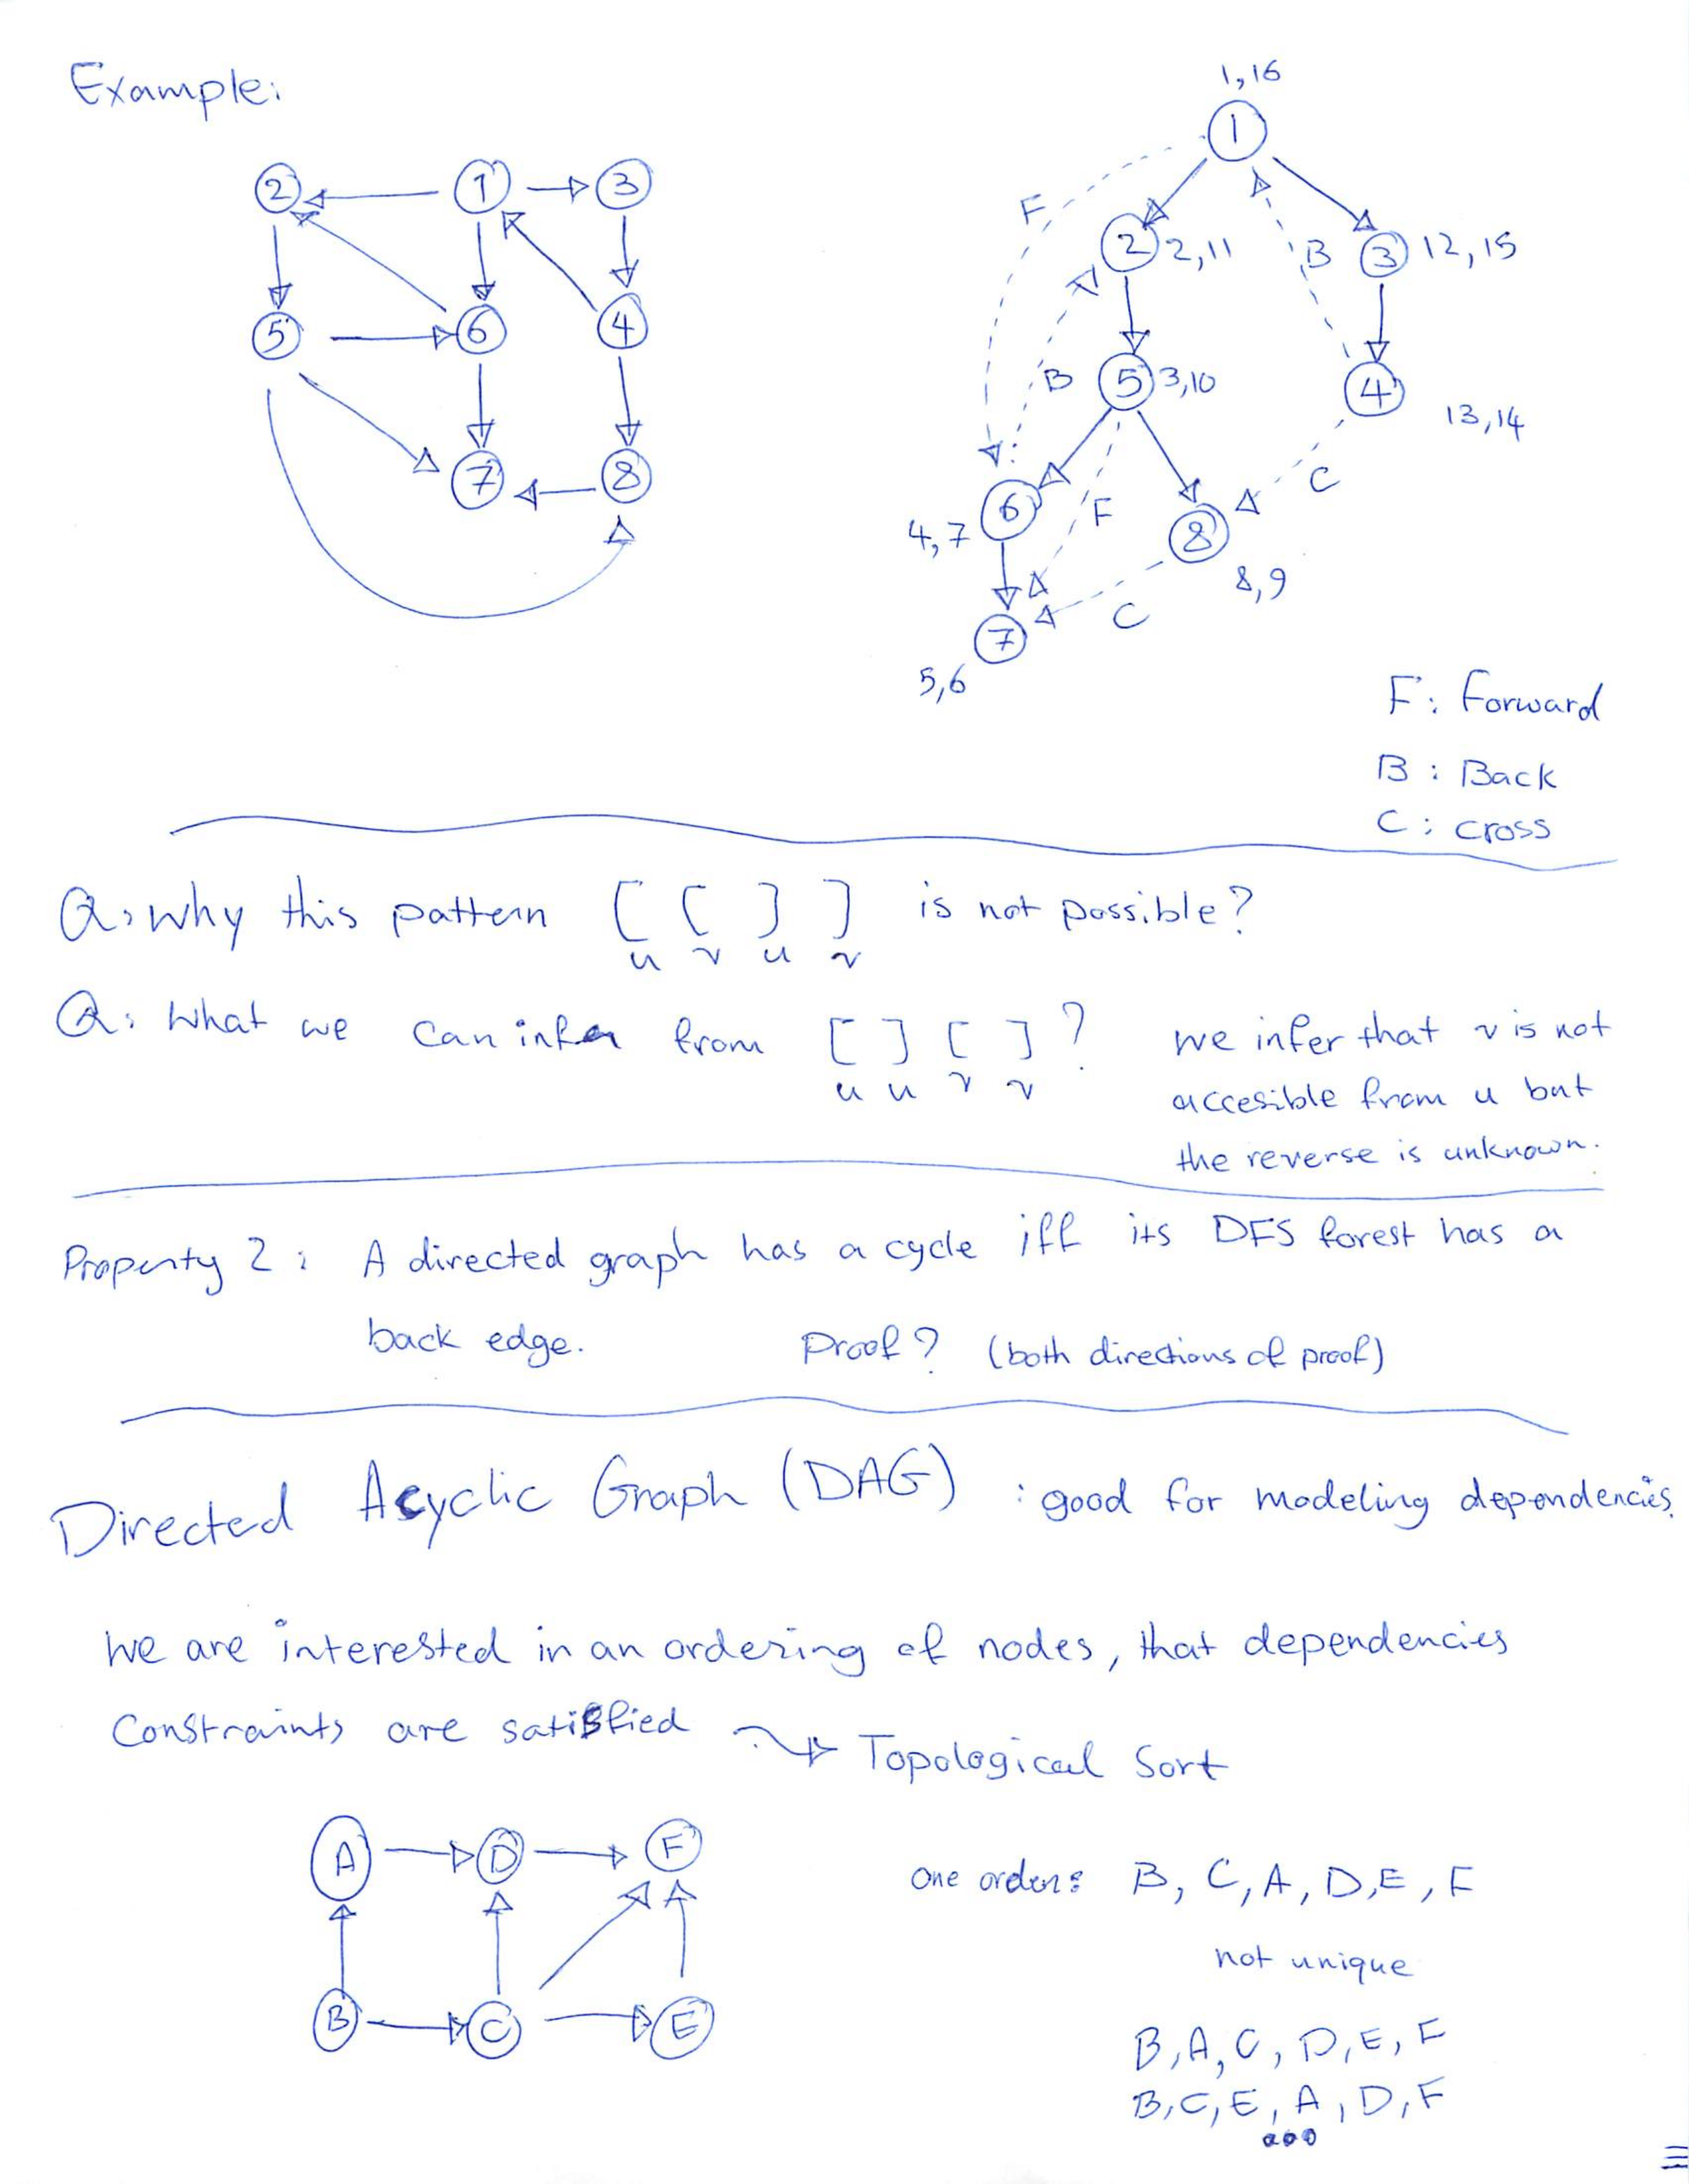 Example:
1,16
1
2 1 3
F
2 2,11 B 3 12,15
5 6 4
B 5 3,10 4 13,14
7 8
6 F C
4,7 8 8,9
C
7
5,6
F: Forward
B: Back
C: cross
Q: why this pattern [ [ ] ] is not possible?
u v u v
Q: What we can infer from [ ] [ ] ? we infer that v is not
u u v v accesible from u but
the reverse is unknown.
Property 2: A directed graph has a cycle iff its DFS forest has a
back edge. Proof? (both directions of proof)
Directed Acyclic Graph (DAG) : good for modeling dependencies.
We are interested in an ordering of nodes, that dependencies
Constraints are satisfied Topological Sort
A D F
one order: B, C, A, D, E, F
not unique
B C E
B, A, C, D, E, F
B, C, E, A, D, F